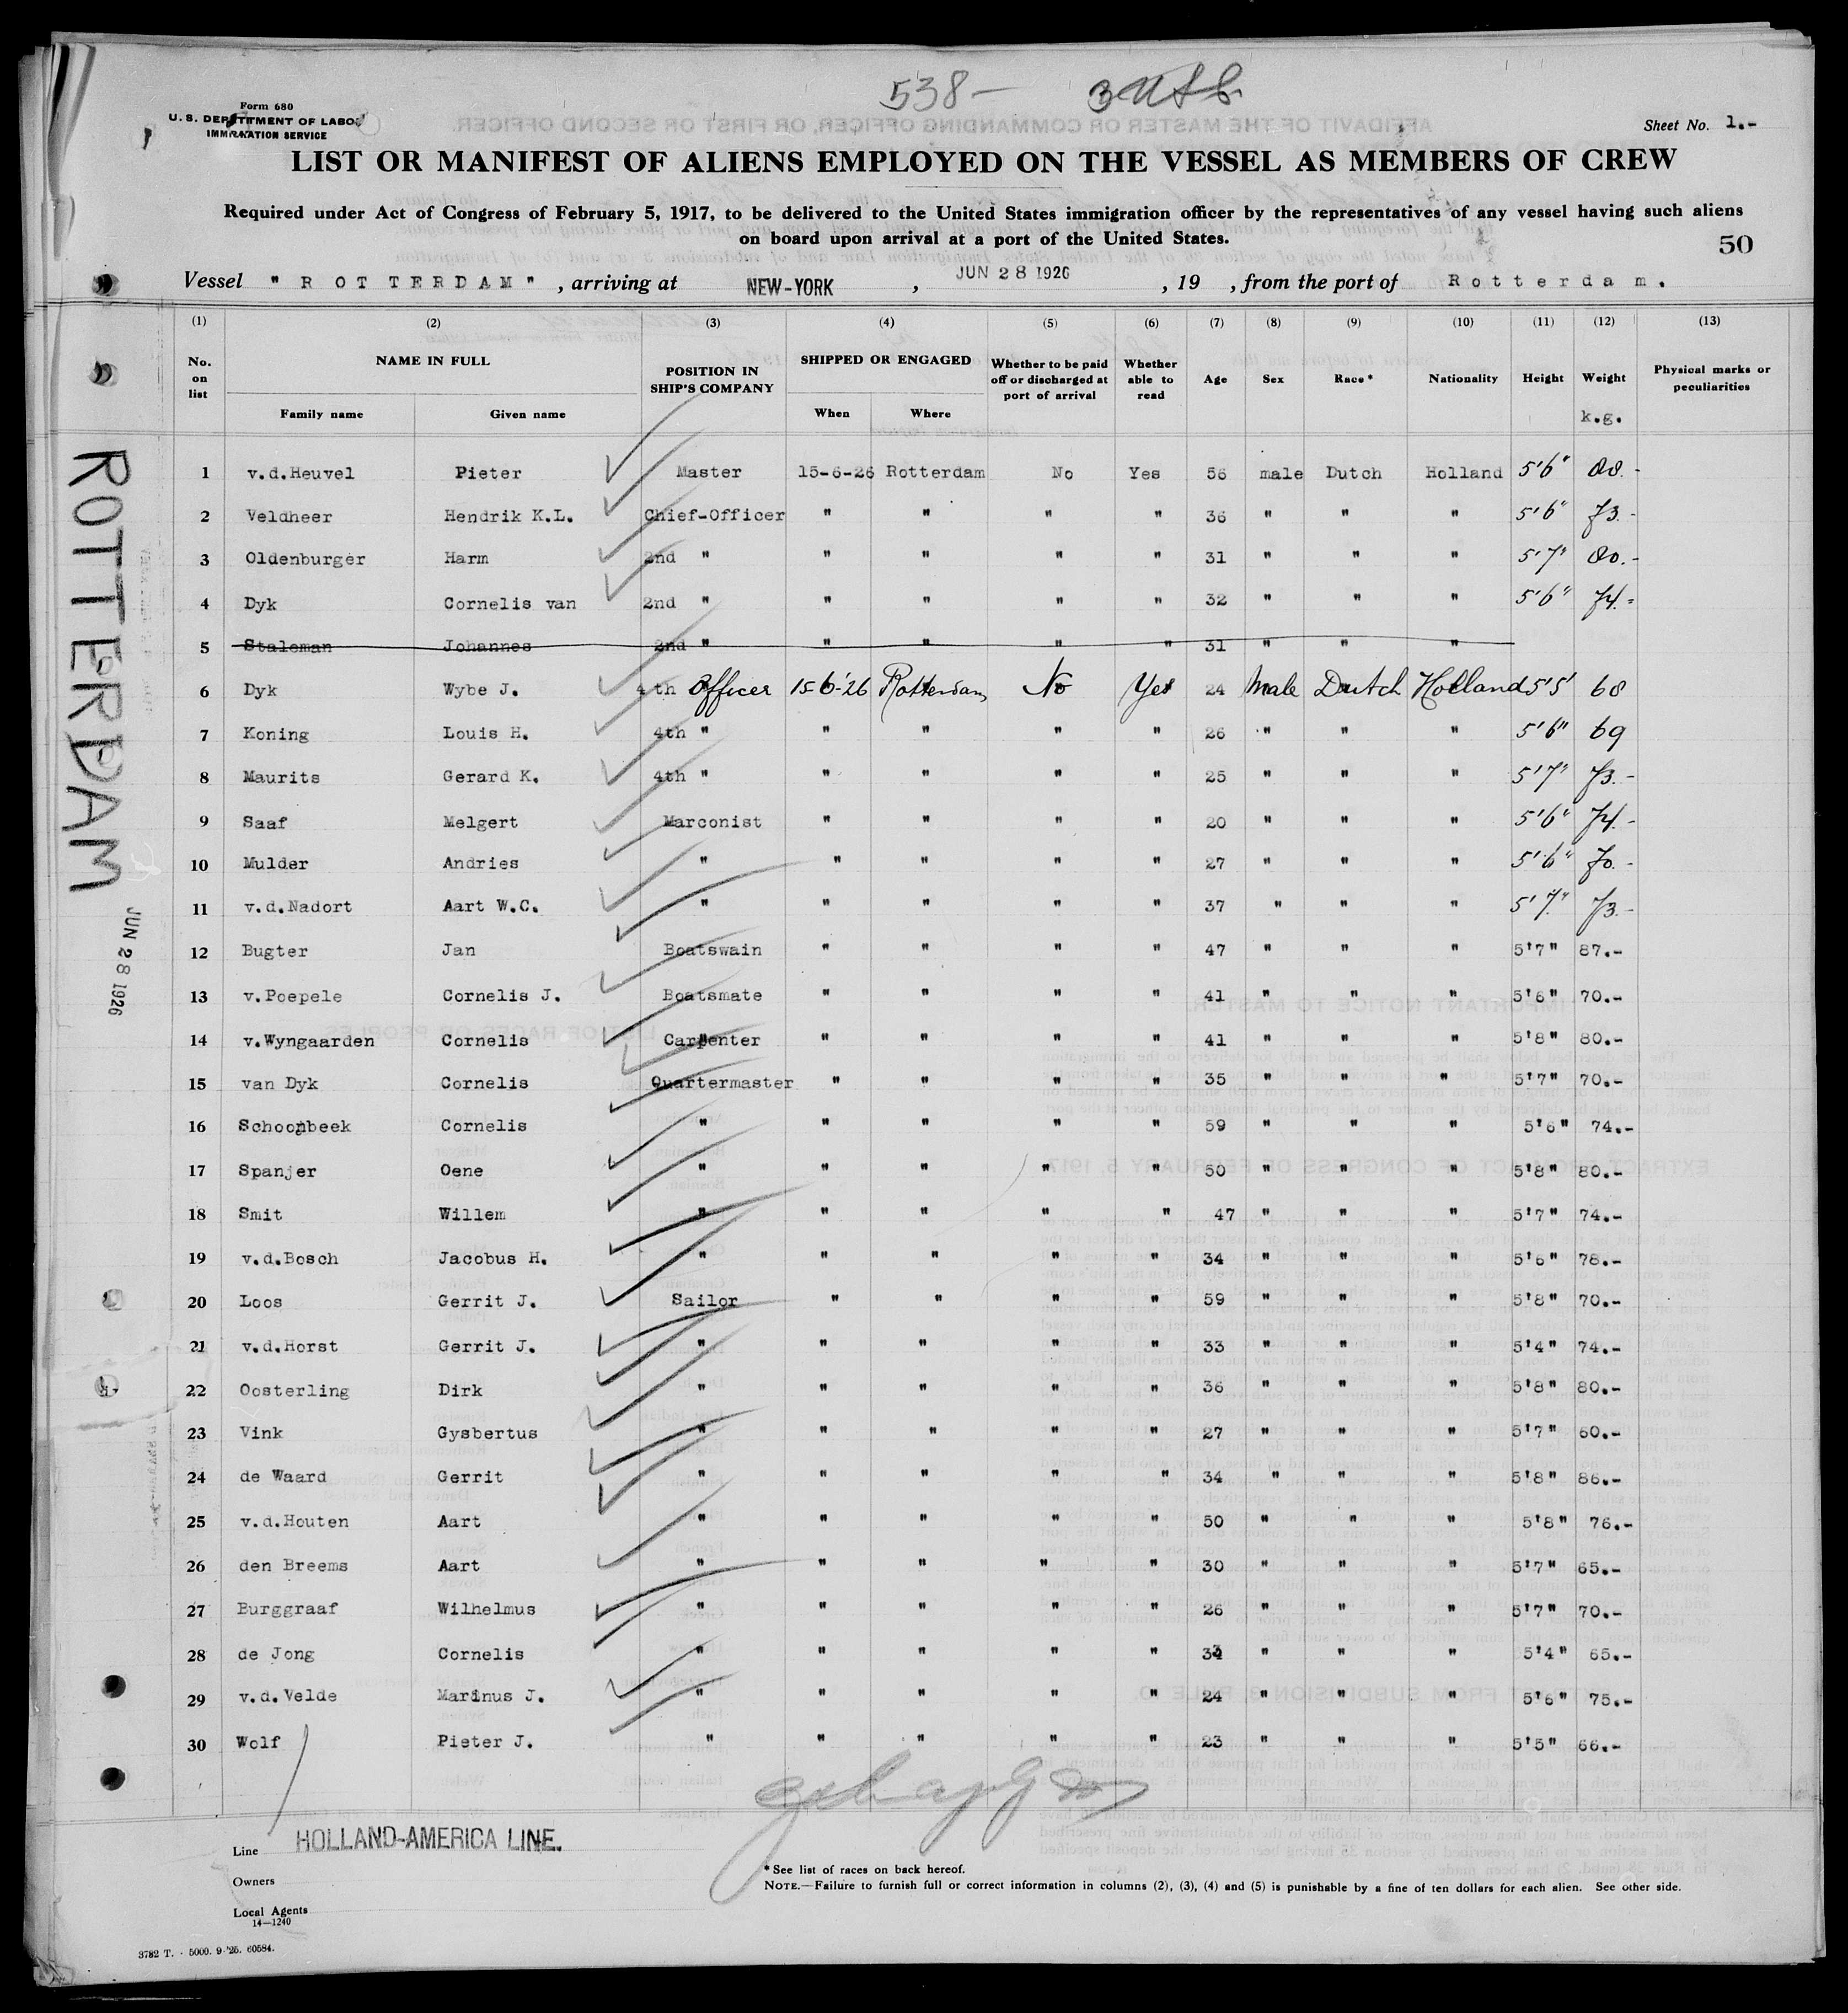 538— 3 USC
Form 680
U. S. DEPARTMENT OF LABOR
IMMIGRATION SERVICE
Sheet No. 1.-
LIST OR MANIFEST OF ALIENS EMPLOYED ON THE VESSEL AS MEMBERS OF CREW
Required under Act of Congress of February 5, 1917, to be delivered to the United States immigration officer by the representatives of any vessel having such aliens
on board upon arrival at a port of the United States.
50
Vessel " R O T T E R D A M " , arriving at NEW-YORK , JUN 28 1926 , 19 , from the port of R o t t e r d a m .
(1) (2) (3) (4) (5) (6) (7) (8) (9) (10) (11) (12) (13)
No. on list NAME IN FULL Family name Given name POSITION IN SHIP'S COMPANY SHIPPED OR ENGAGED When Where Whether to be paid off or discharged at port of arrival Whether able to read Age Sex Race* Nationality Height Weight k.g. Physical marks or peculiarities
1 v.d.Heuvel Pieter Master 15-6-26 Rotterdam No Yes 56 male Dutch Holland 5'6" 80.-
2 Veldheer Hendrik K.L. Chief-Officer " " " " 36 " " " 5'6" 73.-
3 Oldenburger Harm 2nd " " " " " 31 " " " 5'7" 80.-
4 Dyk Cornelis van 2nd " " " " " 32 " " " 5'6" 74.-
5 Staleman Johannes 2nd " " " " " 31 " " "
6 Dyk Wybe J. 4th Officer 15-6-'26 Rotterdam No Yes 24 Male Dutch Holland 5'5' 68
7 Koning Louis H. 4th " " " " " 26 " " " 5'6" 69
8 Maurits Gerard K. 4th " " " " " 25 " " " 5'7" 73.-
9 Saaf Melgert Marconist " " " " 20 " " " 5'6" 74.-
10 Mulder Andries " " " " " 27 " " " 5'6" 70.-
11 v.d.Nadort Aart W.C. " " " " " 37 " " " 5'7" 73.-
12 Bugter Jan Boatswain " " " " 47 " " " 5'7" 87.-
13 v.Poepele Cornelis J. Boatsmate " " " " 41 " " " 5'6" 70.-
14 v.Wyngaarden Cornelis Carpenter " " " " 41 " " " 5'8" 80.-
15 van Dyk Cornelis Quartermaster " " " " 35 " " " 5'7" 70.-
16 Schoonbeek Cornelis " " " " " 59 " " " 5'6" 74.-
17 Spanjer Oene " " " " " 50 " " " 5'8" 80.-
18 Smit Willem " " " " " 47 " " " 5'7" 74.-
19 v.d.Bosch Jacobus H. " " " " " 34 " " " 5'6" 78.-
20 Loos Gerrit J. Sailor " " " " 59 " " " 5'8" 70.-
21 v.d.Horst Gerrit J. " " " " " 33 " " " 5'4" 74.-
22 Oosterling Dirk " " " " " 36 " " " 5'8" 80.-
23 Vink Gysbertus " " " " " 27 " " " 5'7" 60.-
24 de Waard Gerrit " " " " " 34 " " " 5'8" 86.-
25 v.d.Houten Aart " " " " " 50 " " " 5'8" 76.-
26 den Breems Aart " " " " " 30 " " " 5'7" 65.-
27 Burggraaf Wilhelmus " " " " " 26 " " " 5'7" 70.-
28 de Jong Cornelis " " " " " 34 " " " 5'4" 65.-
29 v.d.Velde Marinus J. " " " " " 24 " " " 5'6" 75.-
30 Wolf Pieter J. " " " " " 23 " " " 5'5" 66.-
ROTTERDAM
JUN 28 1926
Line HOLLAND-AMERICA LINE.
Owners
Local Agents
14—1240
* See list of races on back hereof.
NOTE.—Failure to furnish full or correct information in columns (2), (3), (4) and (5) is punishable by a fine of ten dollars for each alien. See other side.
3782 T. - 5000. 9-'25. 60584.